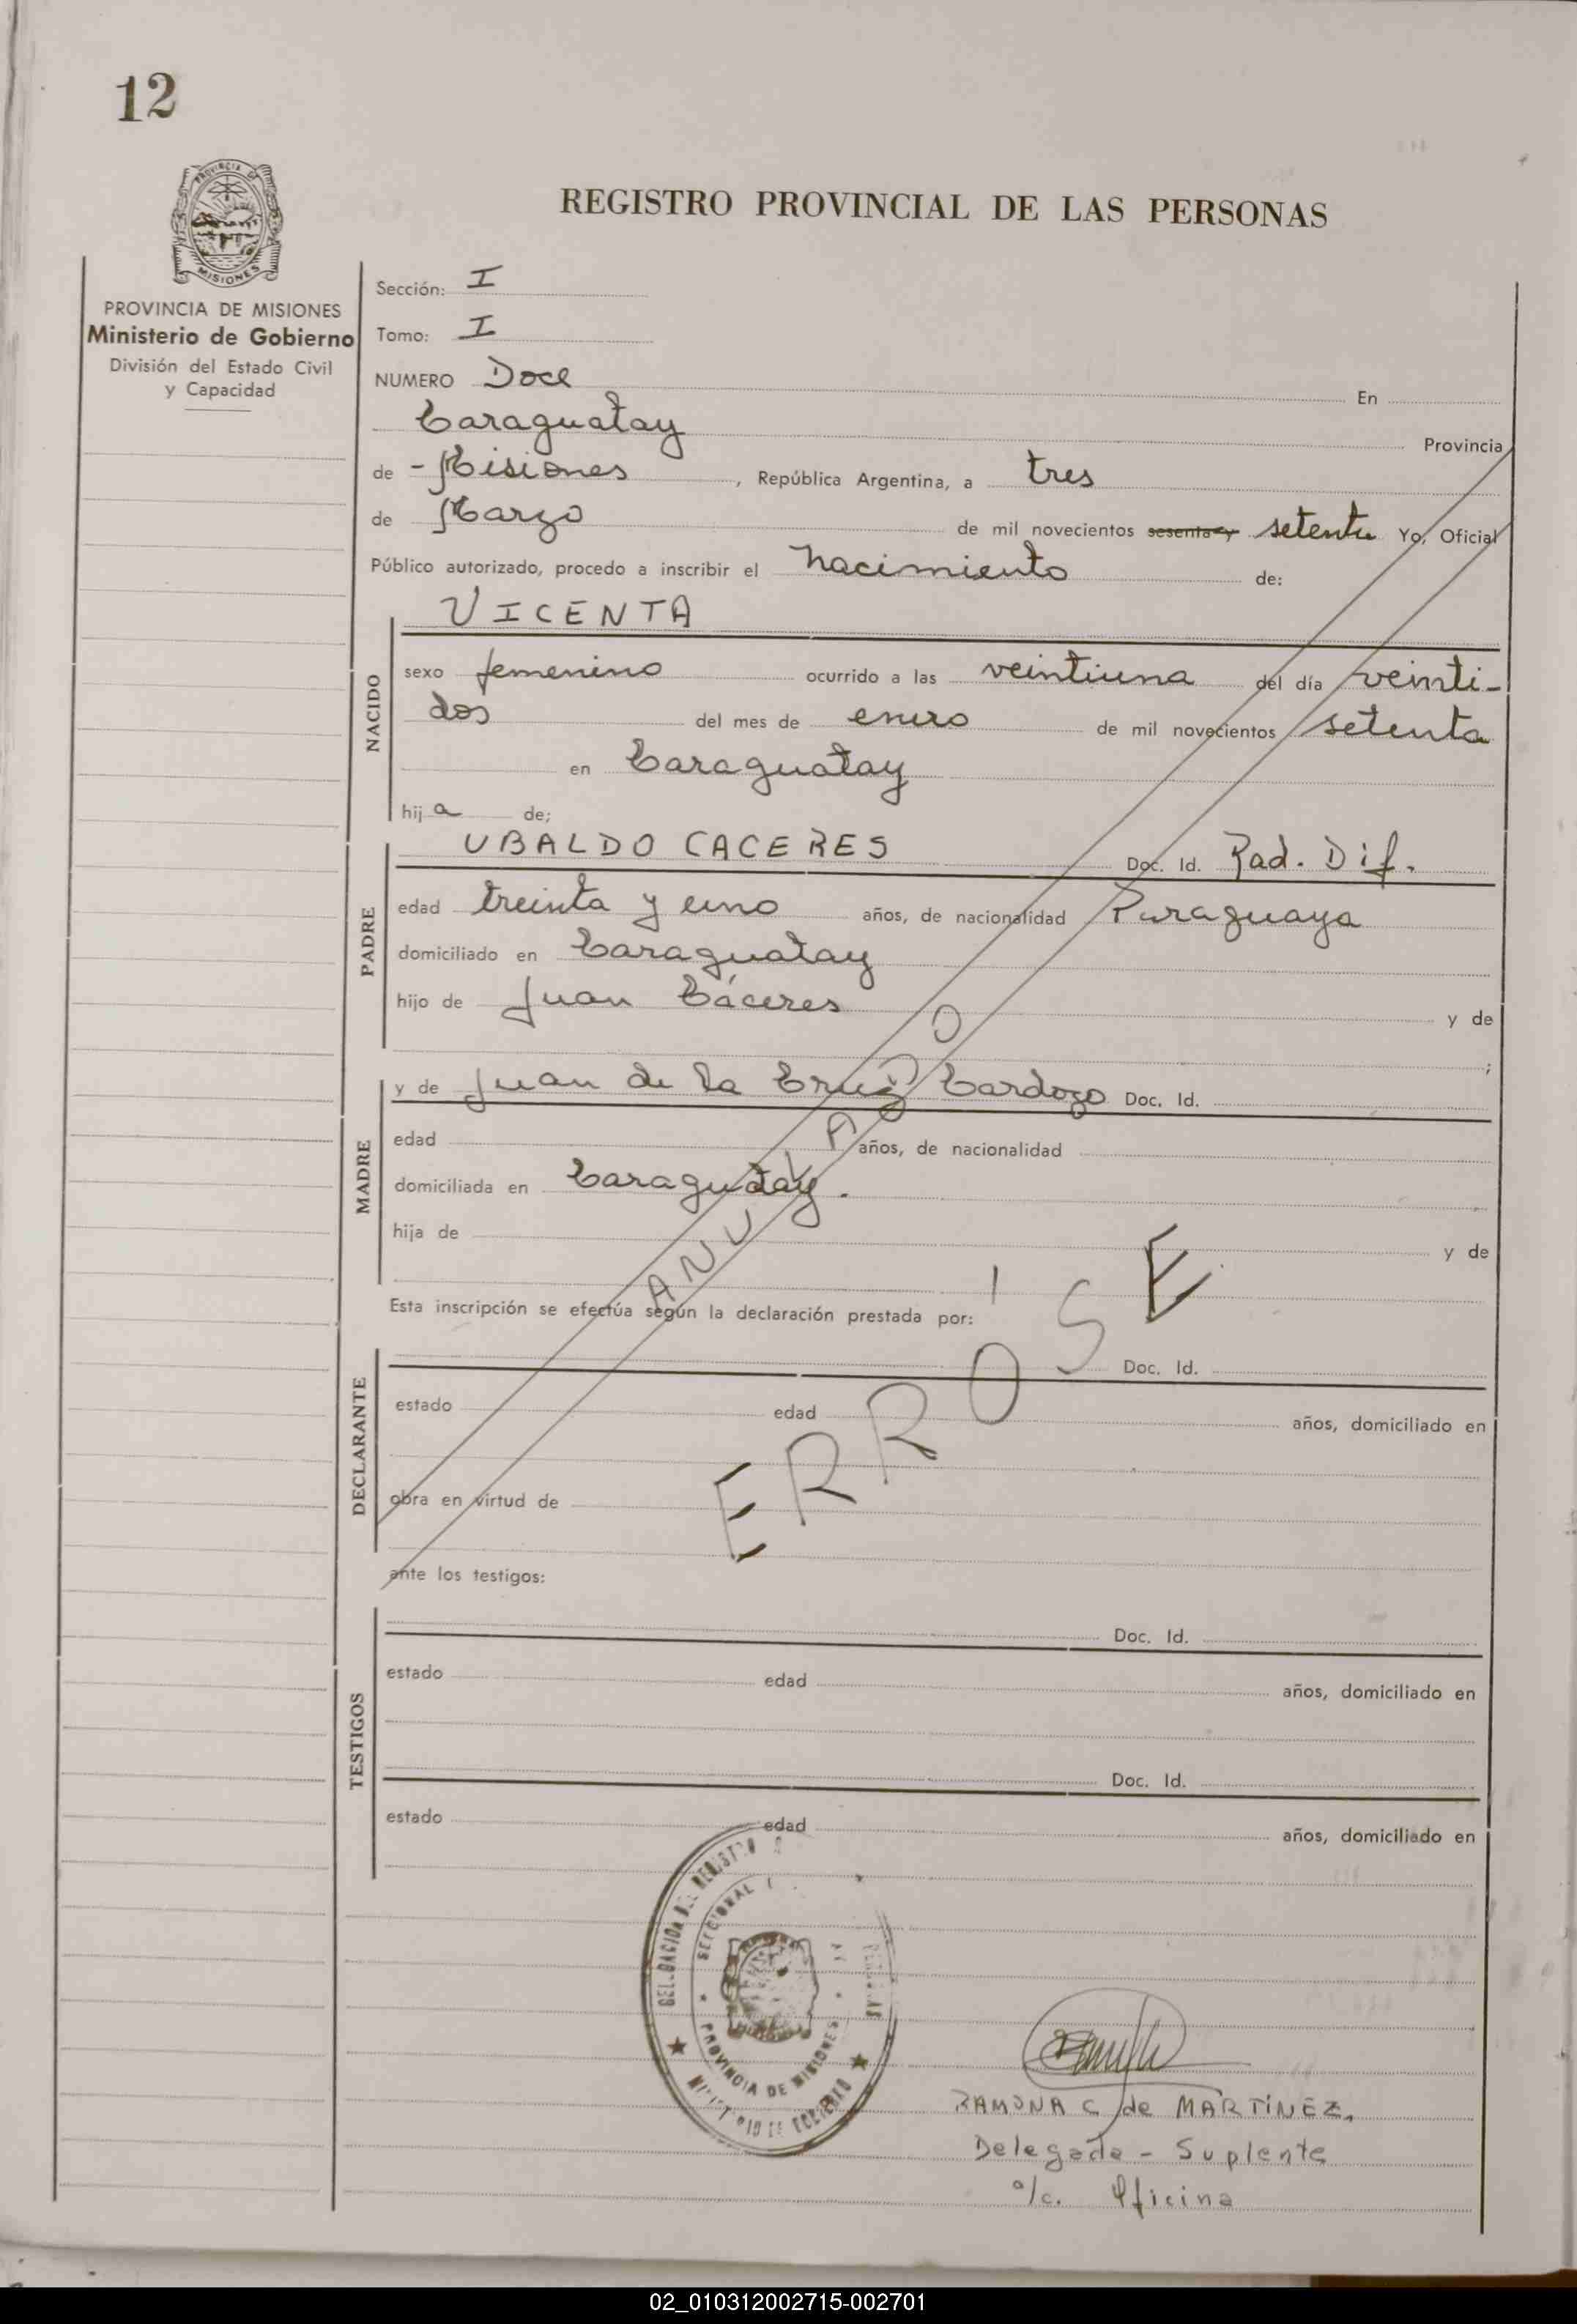 12
PROVINCIA DE
MISIONES
REGISTRO PROVINCIAL DE LAS PERSONAS
PROVINCIA DE MISIONES
Ministerio de Gobierno
División del Estado Civil
y Capacidad
Sección: I
Tomo: I
NUMERO Doce En
Caraguatay Provincia
de - Misiones , República Argentina, a tres
de Marzo de mil novecientos sesenta y setenta Yo, Oficial
Público autorizado, procedo a inscribir el nacimiento de:
VICENTA
NACIDO
sexo femenino ocurrido a las veintiuna del día veinti-
dos del mes de enero de mil novecientos setenta
en Caraguatay
hij a de;
UBALDO CACERES Doc. Id. Rad. Dif.
PADRE
edad treinta y uno años, de nacionalidad Paraguaya
domiciliado en Caraguatay
hijo de Juan Cáceres y de
;
y de Juan de la Cruz Cardozo Doc. Id.
MADRE
edad años, de nacionalidad
domiciliada en Caraguatay.
hija de y de
ANULADO
Esta inscripción se efectúa según la declaración prestada por:
Doc. Id.
ERROSE
DECLARANTE
estado edad años, domiciliado en
obra en virtud de
ante los testigos:
Doc. Id.
TESTIGOS
estado edad años, domiciliado en
Doc. Id.
estado edad años, domiciliado en
DELEGACION DEL REGISTRO
SECCIONAL
PROVINCIA DE MISIONES
MINISTERIO DE GOBIERNO
RAMONA C de MARTINEZ.
Delegada - Suplente
a/c. Oficina
02_010312002715-002701